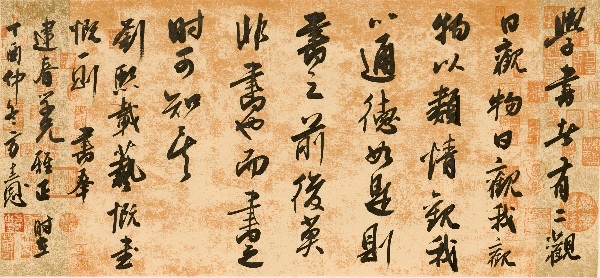 學書者有二觀
曰觀物曰觀我觀
物以類情觀我
以通德如是則
書之前後莫
非書也而書之
時可知矣
劉熙載藝概書
概一則 書奉
建春兄 雅正 時在
丁酉仲冬方